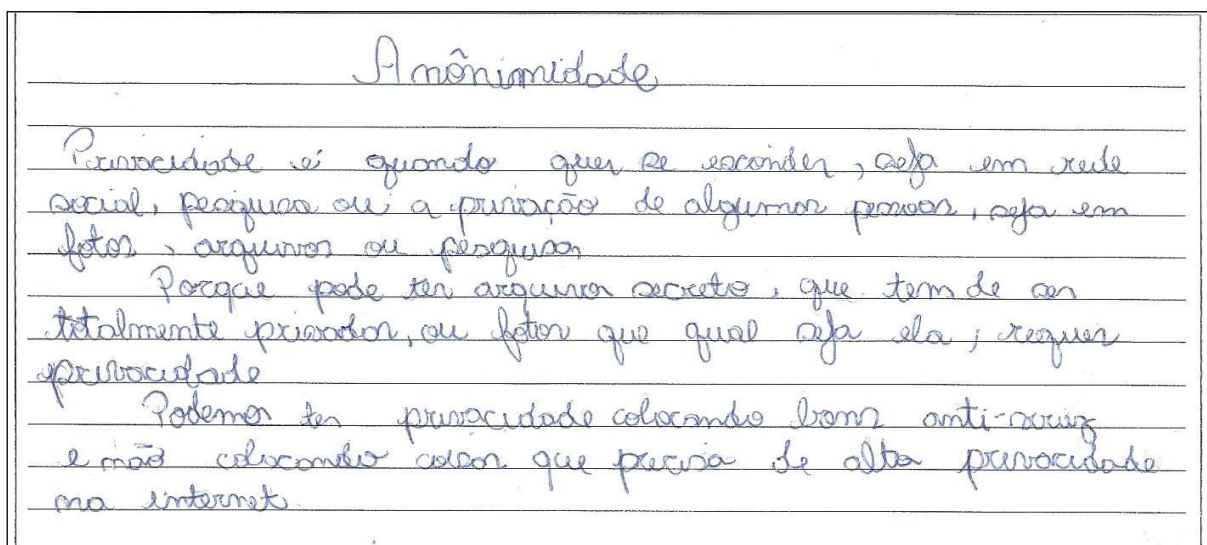 Anônimidade
Privacidade é quando quer se esconder, seja em rede
social, pesquisa ou a privação de algumas pessoas, seja em
fotos, arquivos ou pesquisas
Porque pode ter arquivos secreto, que tem de ser
totalmente privados, ou fotos que qual seja ela, requer
privacidade
Podemos ter privacidade colocando bons anti-viruz
e não colocando coisas que precisa de alta privacidade
na internet.